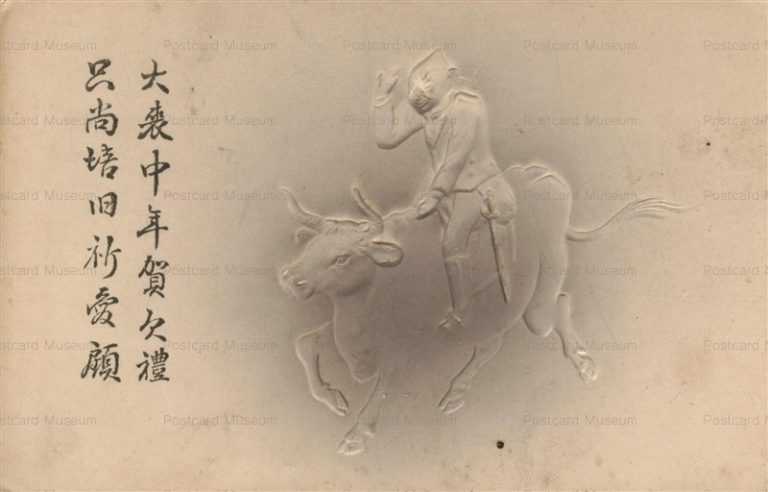 大喪中年賀欠禮
只尚培旧祈愛顧
Postcard Museum